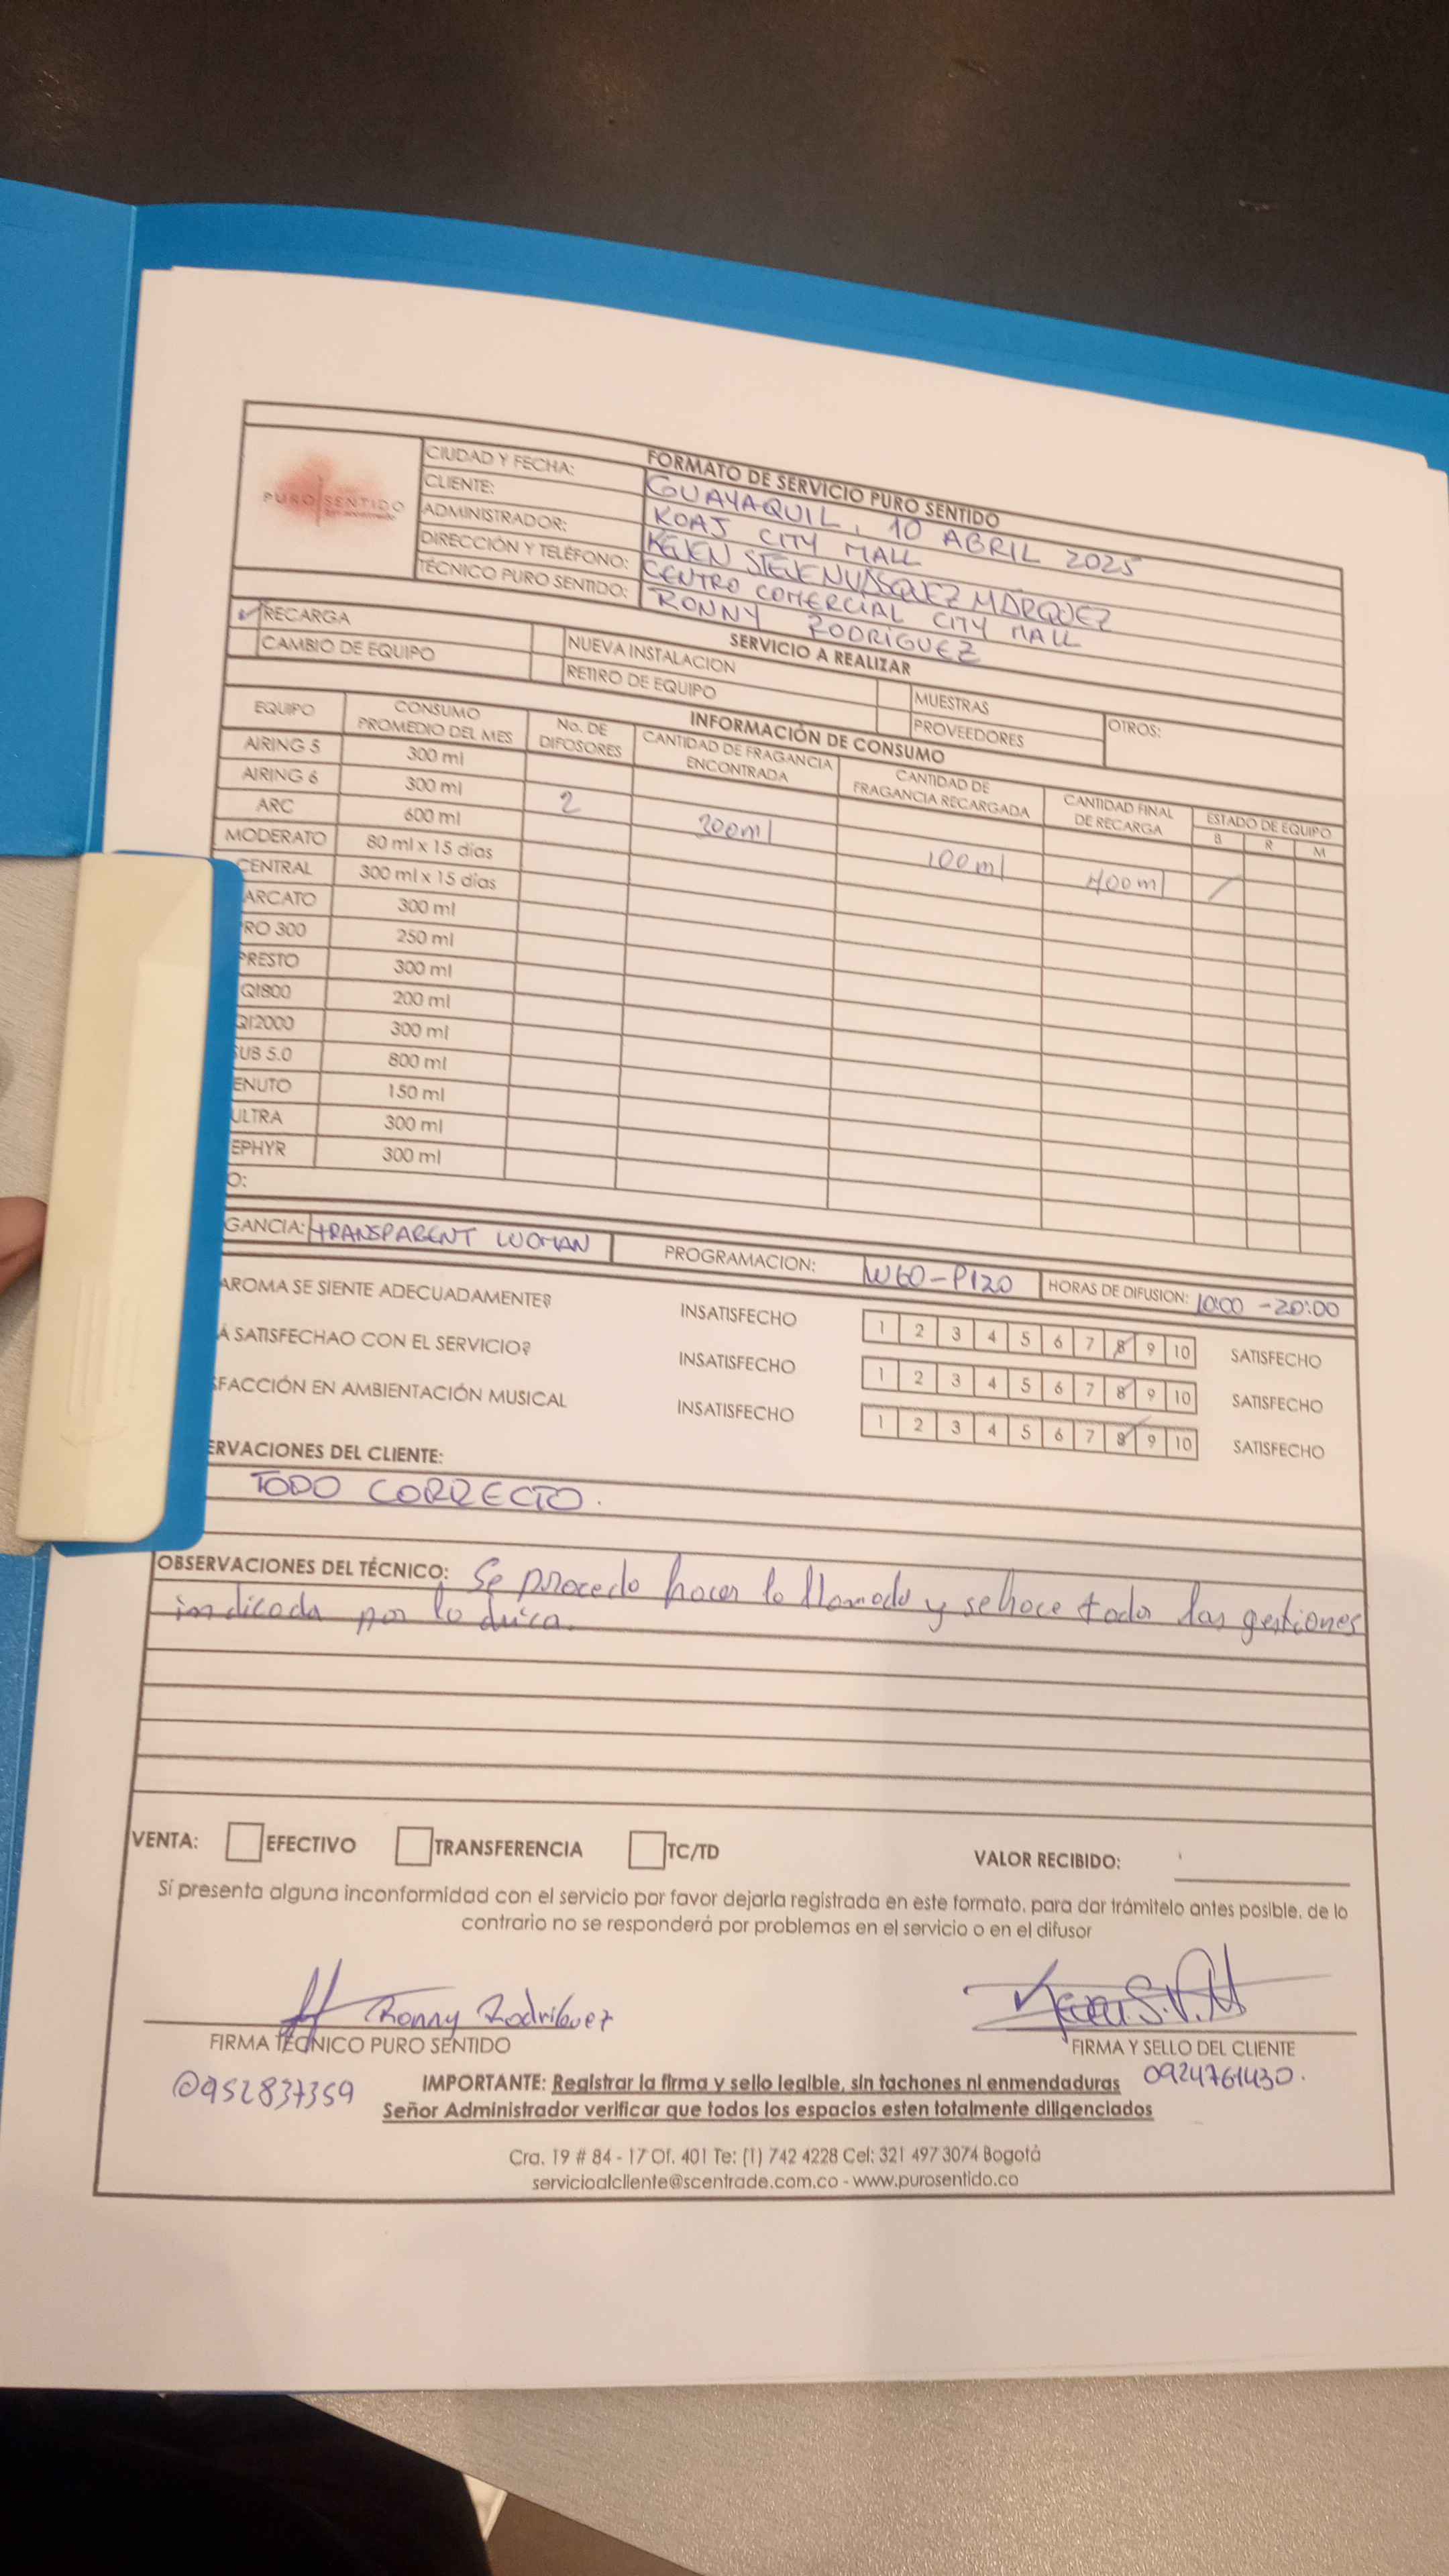 FORMATO DE SERVICIO PURO SENTIDO
PURO SENTIDO
CIUDAD Y FECHA: GUAYAQUIL, 10 ABRIL 2025
CLIENTE: KOAJ CITY MALL
ADMINISTRADOR: KEVEN STEVEN VASQUEZ MARQUEZ
DIRECCIÓN Y TELÉFONO: CENTRO COMERCIAL CITY MALL
TÉCNICO PURO SENTIDO: RONNY RODRÍGUEZ
SERVICIO A REALIZAR
✓ RECARGA NUEVA INSTALACION MUESTRAS OTROS:
CAMBIO DE EQUIPO RETIRO DE EQUIPO PROVEEDORES
INFORMACIÓN DE CONSUMO
EQUIPO CONSUMO PROMEDIO DEL MES No. DE DIFOSORES CANTIDAD DE FRAGANCIA ENCONTRADA CANTIDAD DE FRAGANCIA RECARGADA CANTIDAD FINAL DE RECARGA ESTADO DE EQUIPO
B R M
AIRING 5 300 ml
AIRING 6 300 ml 2 300ml 100ml 400ml /
ARC 600 ml
MODERATO 80 ml x 15 días
CENTRAL 300 ml x 15 días
ARCATO 300 ml
RO 300 250 ml
PRESTO 300 ml
QI800 200 ml
QI2000 300 ml
SUB 5.0 800 ml
ENUTO 150 ml
ULTRA 300 ml
EPHYR 300 ml
O:
GANCIA: TRANSPARENT WOMAN PROGRAMACION: W60-P120 HORAS DE DIFUSION: 10:00 - 20:00
AROMA SE SIENTE ADECUADAMENTE? INSATISFECHO 1 2 3 4 5 6 7 8 9 10 SATISFECHO
Á SATISFECHAO CON EL SERVICIO? INSATISFECHO 1 2 3 4 5 6 7 8 9 10 SATISFECHO
SFACCIÓN EN AMBIENTACIÓN MUSICAL INSATISFECHO 1 2 3 4 5 6 7 8 9 10 SATISFECHO
ERVACIONES DEL CLIENTE:
TODO CORRECTO.
OBSERVACIONES DEL TÉCNICO: Se procedo hacer lo llamado y se hace todo las gestiones
indicada por lo
VENTA: EFECTIVO TRANSFERENCIA TC/TD VALOR RECIBIDO:
Sí presenta alguna inconformidad con el servicio por favor dejarla registrada en este formato, para dar trámitelo antes posible, de lo
contrario no se responderá por problemas en el servicio o en el difusor
Ronny Rodriguez
FIRMA TÉCNICO PURO SENTIDO FIRMA Y SELLO DEL CLIENTE
0952837359 0924761430.
IMPORTANTE: Registrar la firma y sello legible, sin tachones ni enmendaduras
Señor Administrador verificar que todos los espacios esten totalmente diligenciados
Cra. 19 # 84 - 17 Of. 401 Te: (1) 742 4228 Cel: 321 497 3074 Bogotá
servicioalcliente@scentrade.com.co - www.purosentido.co